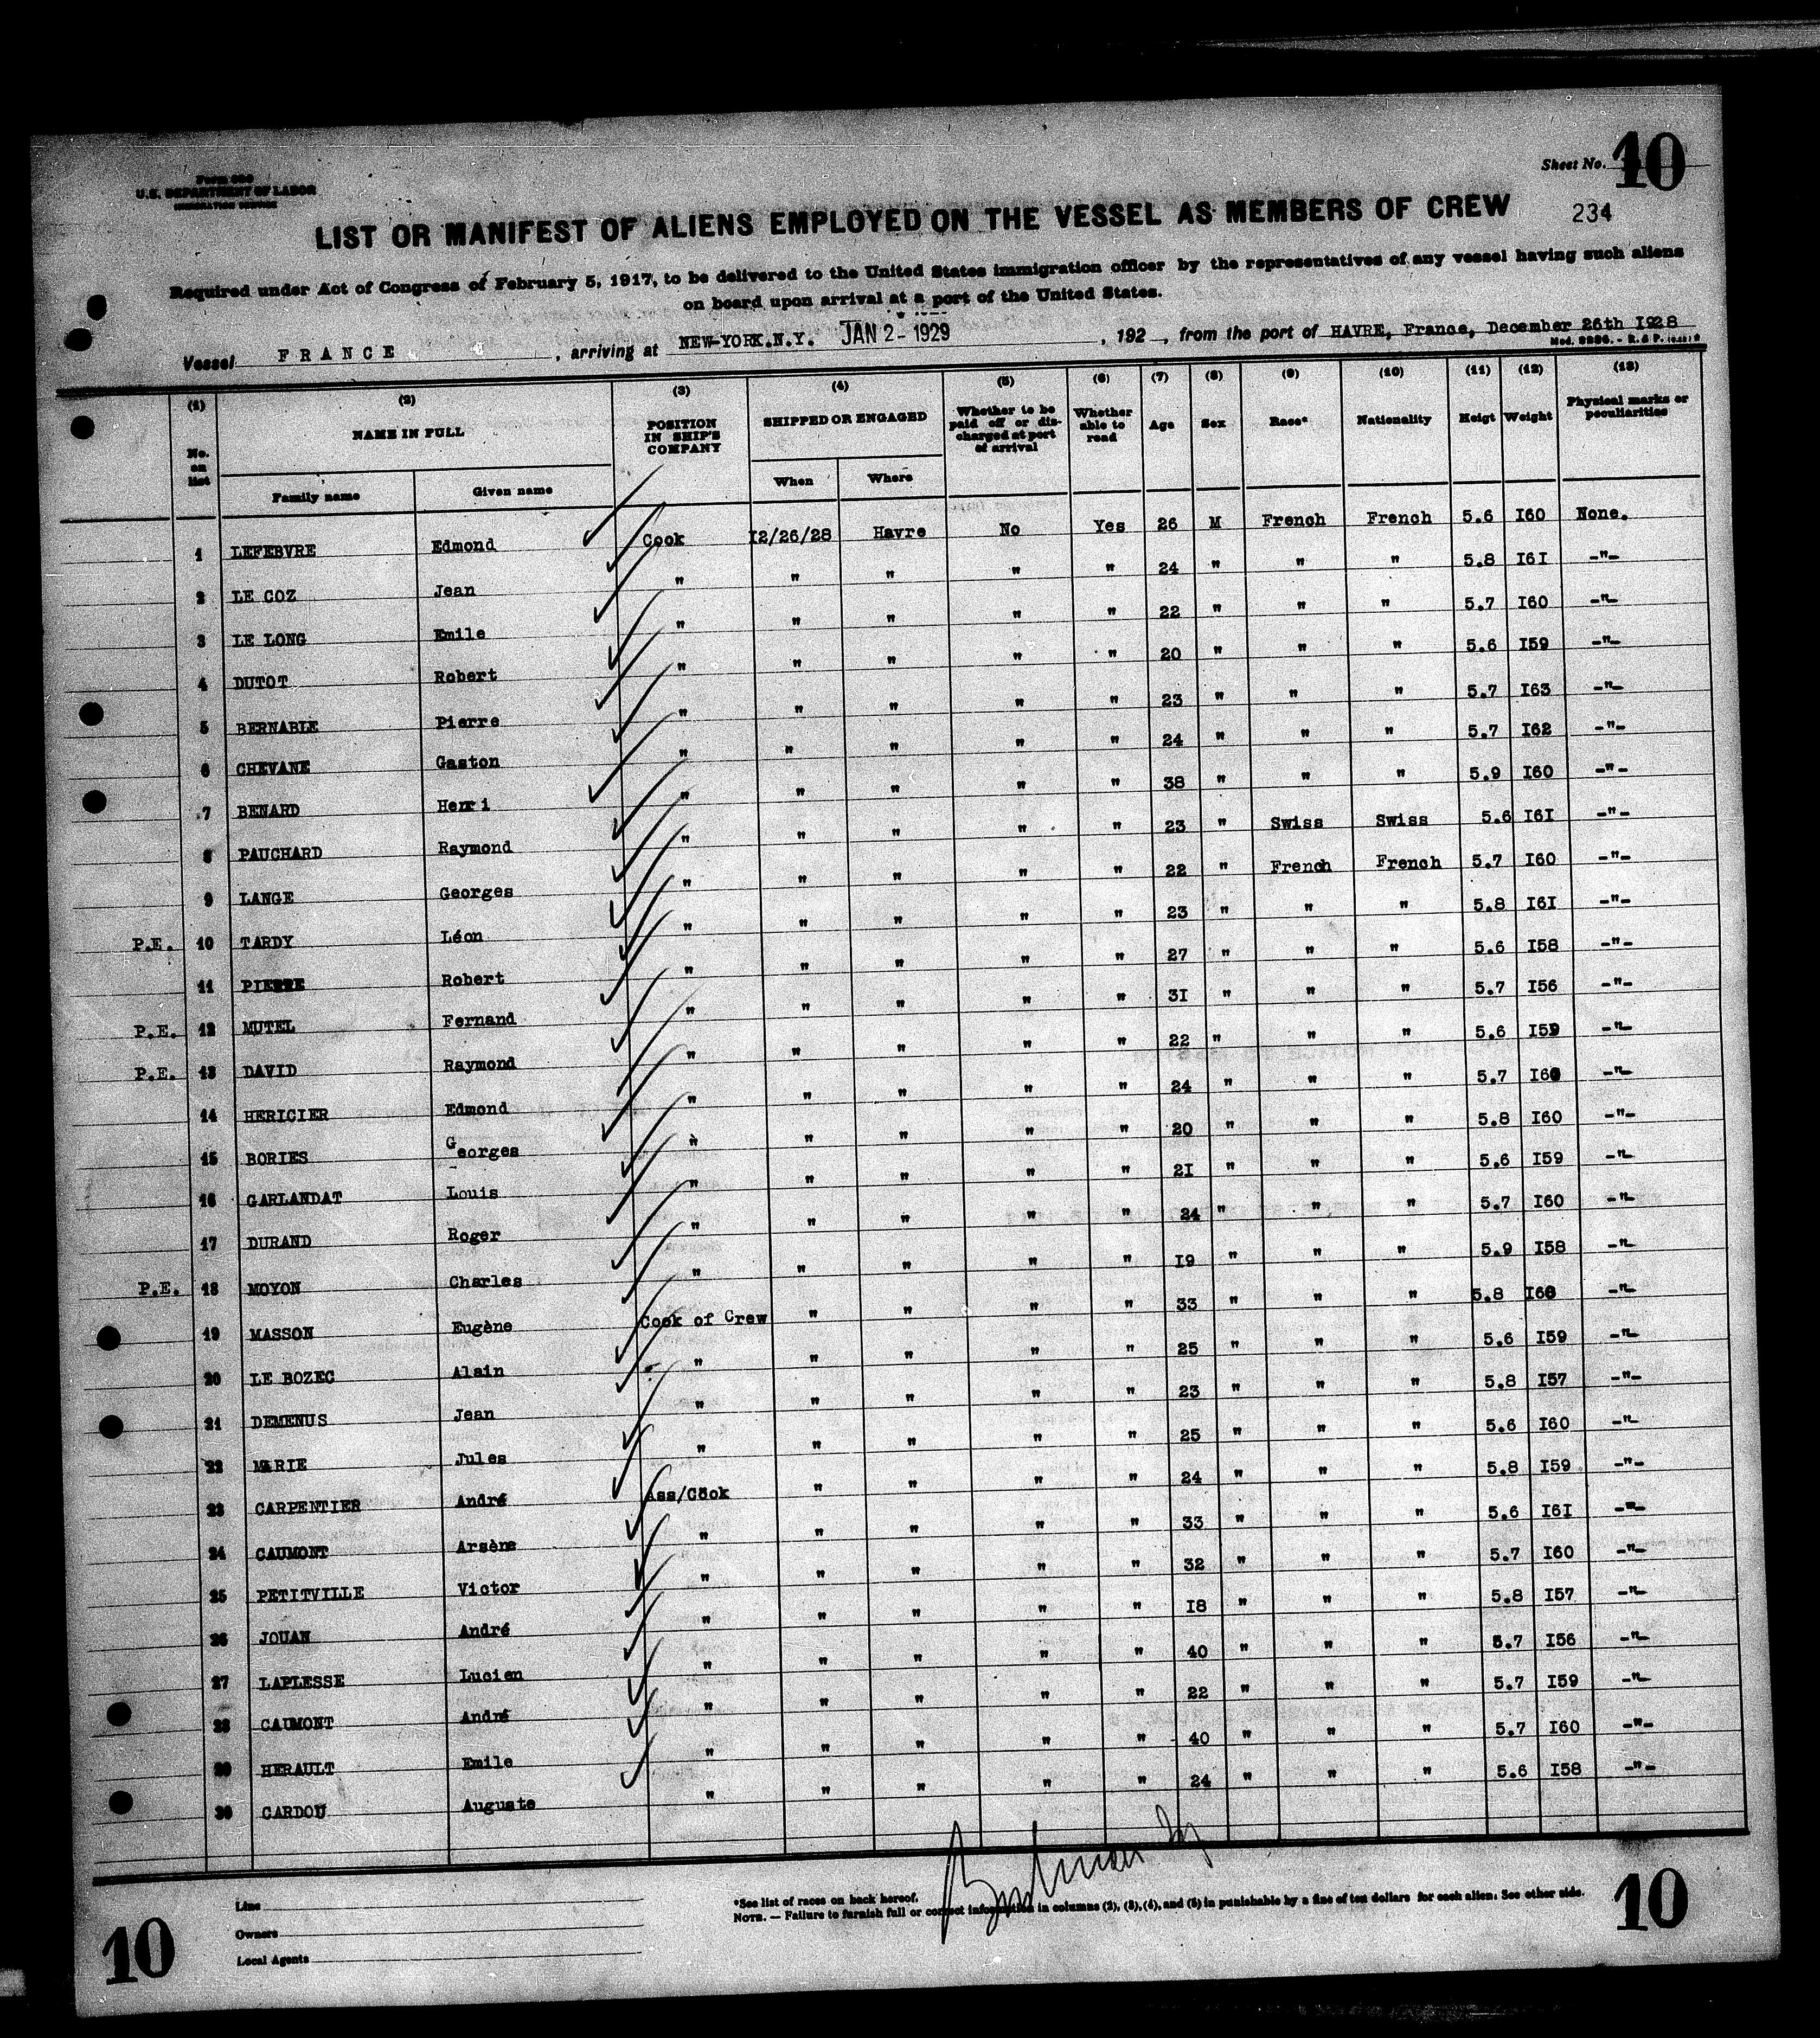 Sheet No. 10
U.S. DEPARTMENT OF LABOR
IMMIGRATION SERVICE
LIST OR MANIFEST OF ALIENS EMPLOYED ON THE VESSEL AS MEMBERS OF CREW
234
Required under Act of Congress of February 5, 1917, to be delivered to the United States immigration officer by the representatives of any vessel having such aliens
on board upon arrival at a port of the United States.
Vessel FRANCE, arriving at NEW-YORK.N.Y. JAN 2- 1929, 192 , from the port of HAVRE, France, December 26th I928
(1) (2) (3) (4) (5) (6) (7) (8) (9) (10) (11) (12) (13)
No. on list NAME IN FULL POSITION IN SHIP'S COMPANY SHIPPED OR ENGAGED Whether to be paid off or discharged at port of arrival Whether able to read Age Sex Race* Nationality Heigt Weight Physical marks or peculiarities
Family name Given name When Where
1 LEFEBVRE Edmond Cook I2/26/28 Havre No Yes 26 M French French 5.6 I60 None.
2 LE COZ Jean " " " " " 24 " " " 5.8 I6I -"-
3 LE LONG Emile " " " " " 22 " " " 5.7 I60 -"-
4 DUTOT Robert " " " " " 20 " " " 5.6 I59 -"-
5 BERNABLE Pierre " " " " " 23 " " " 5.7 I63 -"-
6 CHEVANE Gaston " " " " " 24 " " " 5.7 I62 -"-
7 BENARD Henri " " " " " 38 " " " 5.9 I60 -"-
8 PAUCHARD Raymond " " " " " 23 " Swiss Swiss 5.6 I6I -"-
9 LANGE Georges " " " " " 22 " French French 5.7 I60 -"-
P.E. 10 TARDY Léon " " " " " 23 " " " 5.8 I6I -"-
11 PIERRE Robert " " " " " 27 " " " 5.6 I58 -"-
P.E. 12 MUTEL Fernand " " " " " 3I " " " 5.7 I56 -"-
P.E. 13 DAVID Raymond " " " " " 22 " " " 5.6 I59 -"-
14 HERICIER Edmond " " " " " 24 " " " 5.7 I60 -"-
15 BORIES Georges " " " " " 20 " " " 5.8 I60 -"-
16 GARLANDAT Louis " " " " " 2I " " " 5.6 I59 -"-
17 DURAND Roger " " " " " 24 " " " 5.7 I60 -"-
P.E. 18 MOYON Charles " " " " " I9 " " " 5.9 I58 -"-
19 MASSON Eugène Cook of Crew " " " " 33 " " " 5.8 I60 -"-
20 LE BOZEC Alain " " " " " 25 " " " 5.6 I59 -"-
21 DEMENUS Jean " " " " " 23 " " " 5.8 I57 -"-
22 MARIE Jules " " " " " 25 " " " 5.6 I60 -"-
23 CARPENTIER André Ass/Cook " " " " 24 " " " 5.8 I59 -"-
24 CAUMONT Arsène " " " " " 33 " " " 5.6 I6I -"-
25 PETITVILLE Victor " " " " " 32 " " " 5.7 I60 -"-
26 JOUAN André " " " " " I8 " " " 5.8 I57 -"-
27 LAPLESSE Lucien " " " " " 40 " " " 5.7 I56 -"-
28 CAUMONT André " " " " " 22 " " " 5.7 I59 -"-
29 HERAULT Emile " " " " " 40 " " " 5.7 I60 -"-
30 CARDOU Auguste " " " " " 24 " " " 5.6 I58 -"-
Line
Owners
Local Agents
*See list of races on back hereof.
NOTE. — Failure to furnish full or correct information in columns (2), (3), (4), and (5) in punishable by a fine of ten dollars for each alien. See other side.
10
10